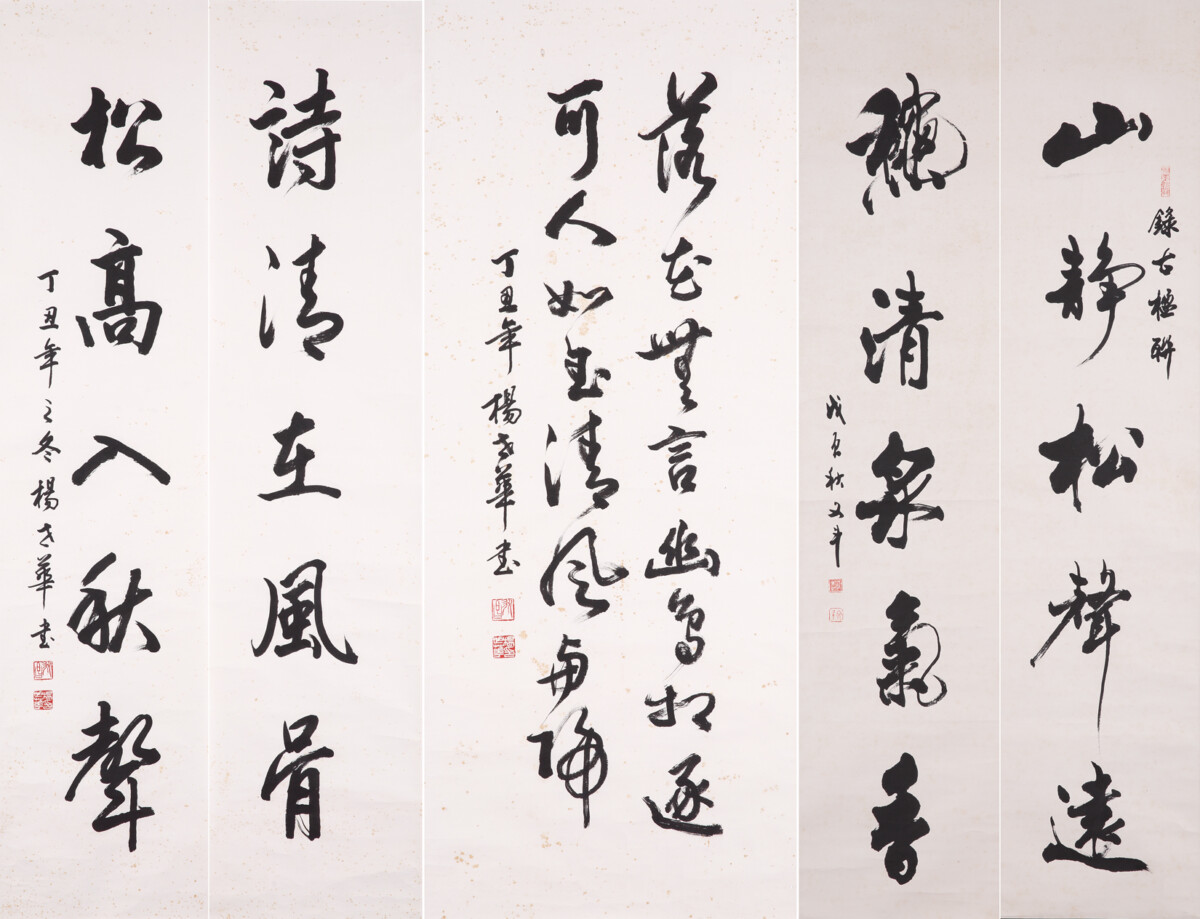 錄古楹聯
山靜松聲遠
龝清泉氣香
戊寅秋文
落花無言幽鳥相逐
可人如玉清風與歸
丁丑年楊華書
詩清在風骨
松高入秋聲
丁丑年之冬楊華書